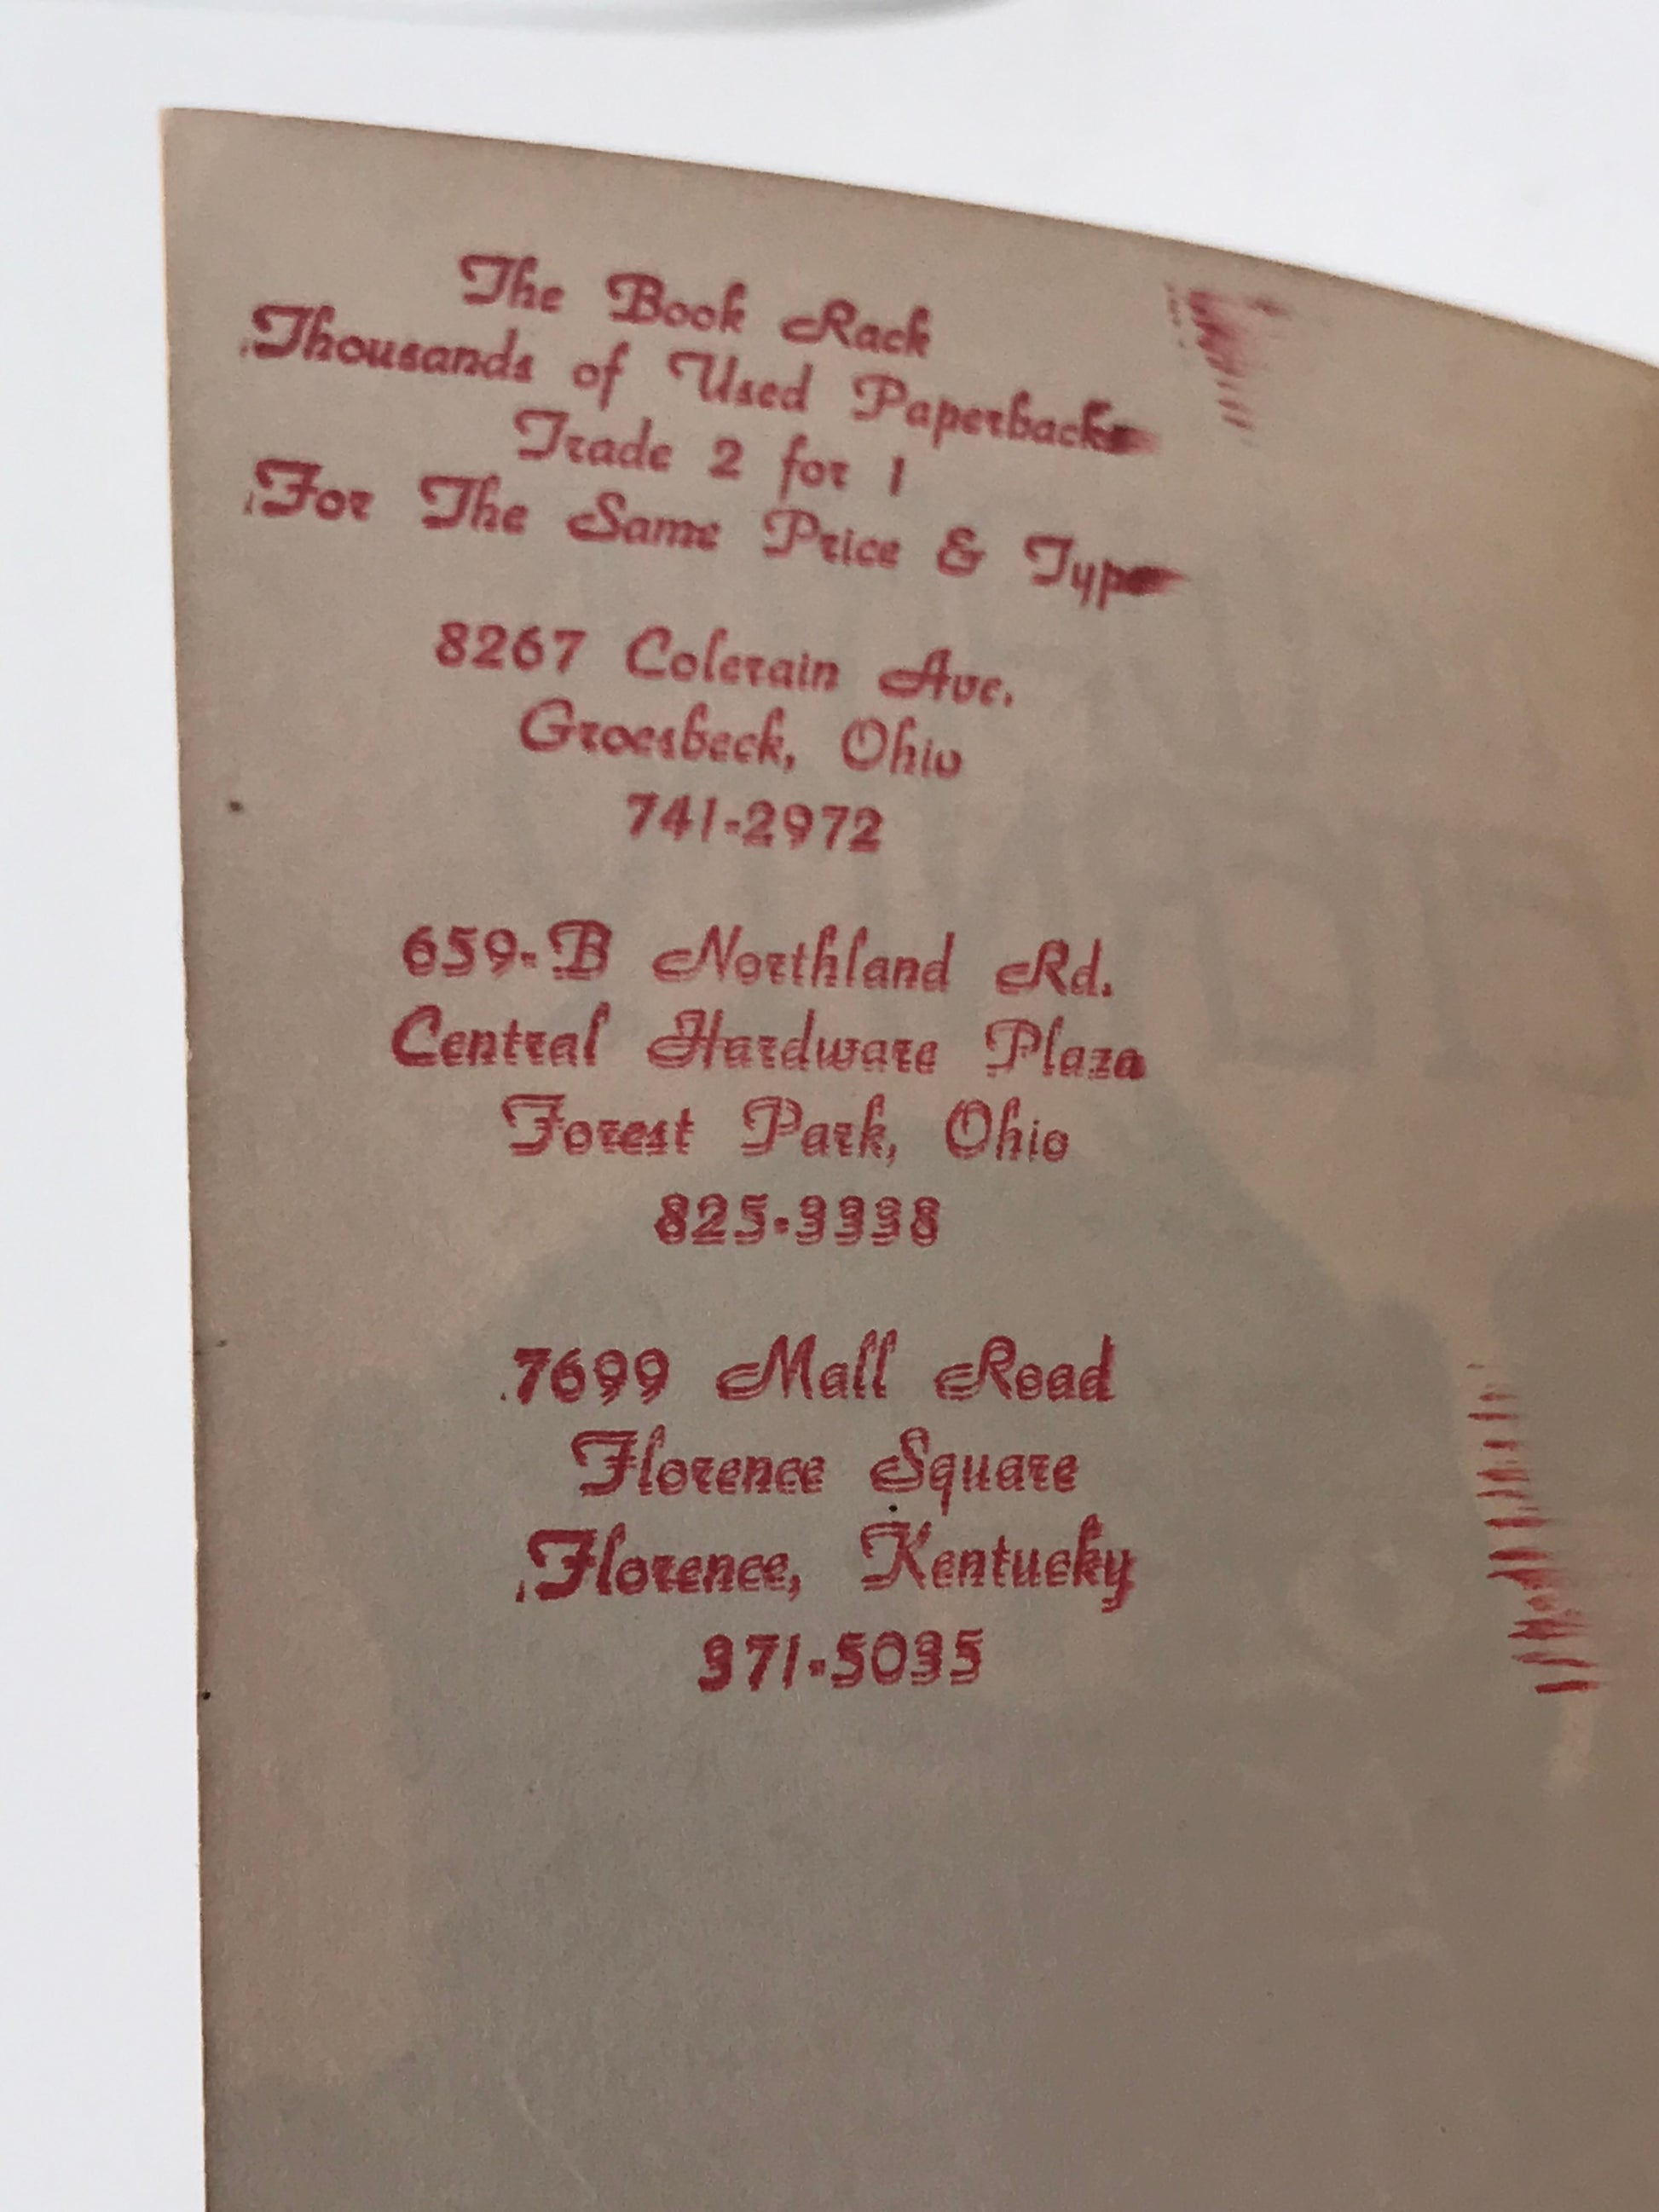 The Book Rack
Thousands of Used Paperbacks
Trade 2 for 1
For The Same Price & Type
8267 Colerain Ave.
Groesbeck, Ohio
741-2972
659-B Northland Rd.
Central Hardware Plaza
Forest Park, Ohio
825-3338
7699 Mall Road
Florence Square
Florence, Kentucky
371-5035